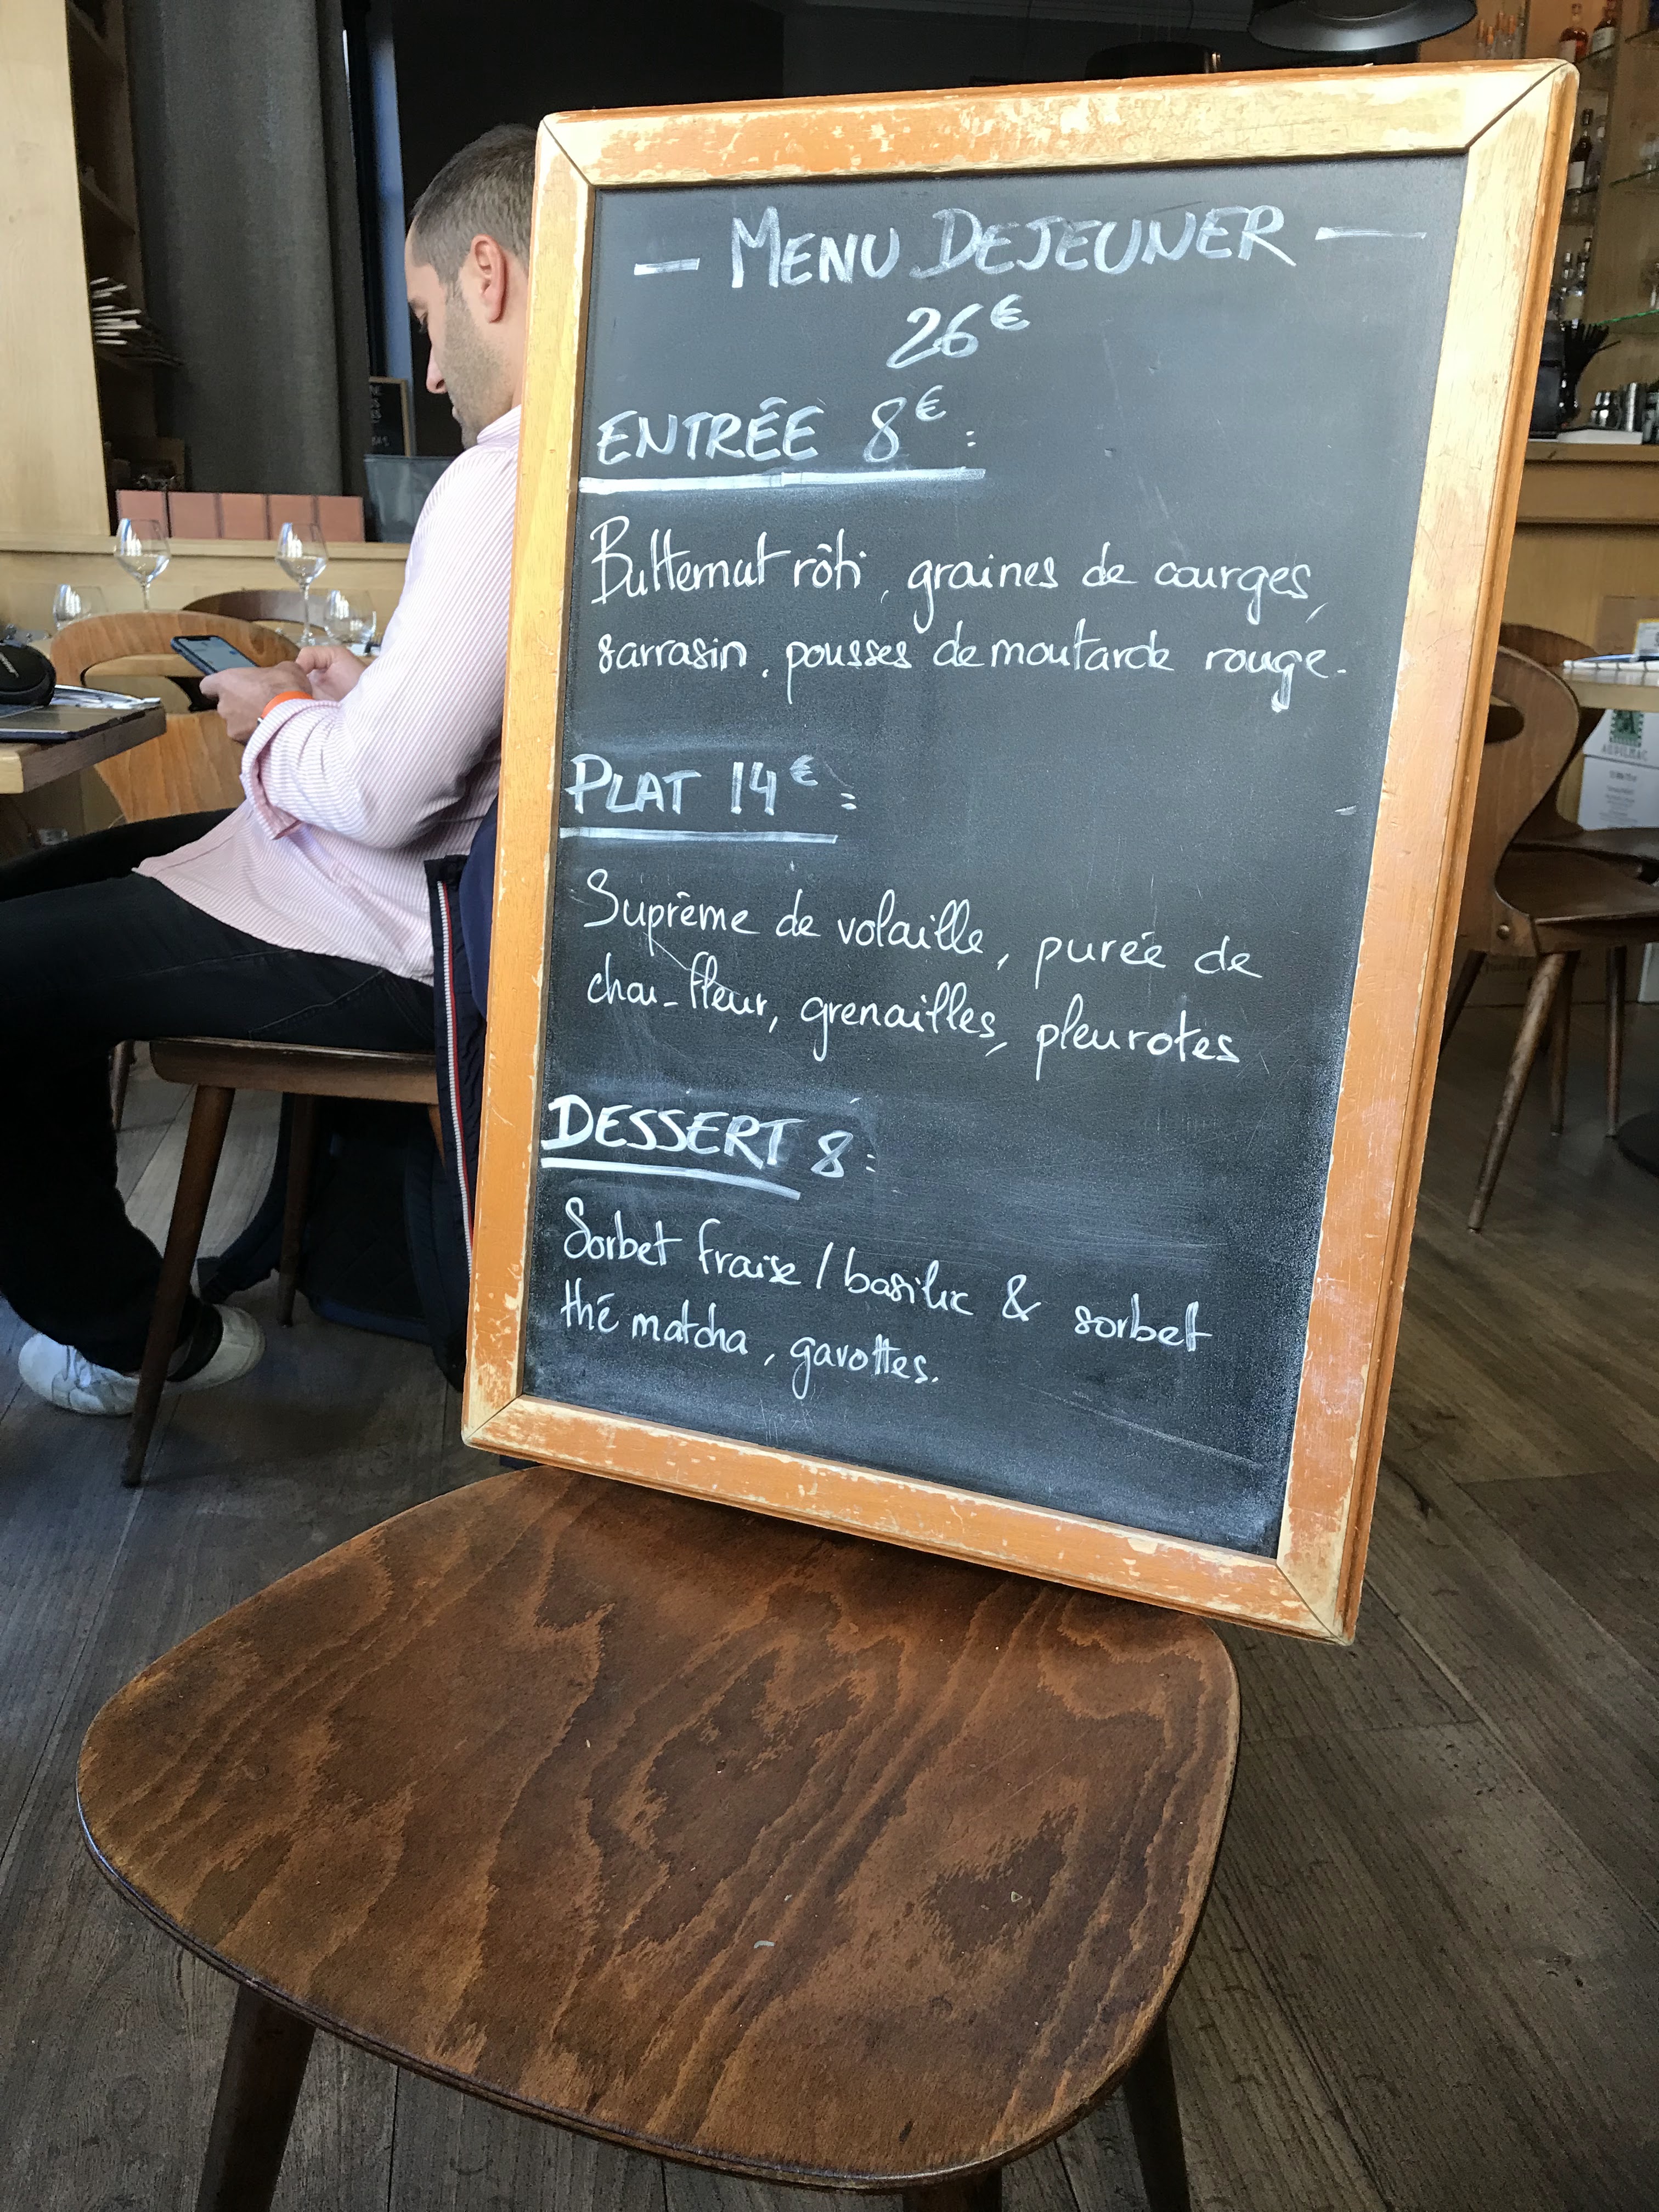 — MENU DEJEUNER —
26€
ENTRÉE 8€ :
Butternut rôti, graines de courges,
sarrasin, pousses de moutarde rouge.
PLAT 14€ :
Suprême de volaille, purée de
chou-fleur, grenailles, pleurotes
DESSERT 8 :
Sorbet fraise / basilic & sorbet
thé matcha, gavottes.